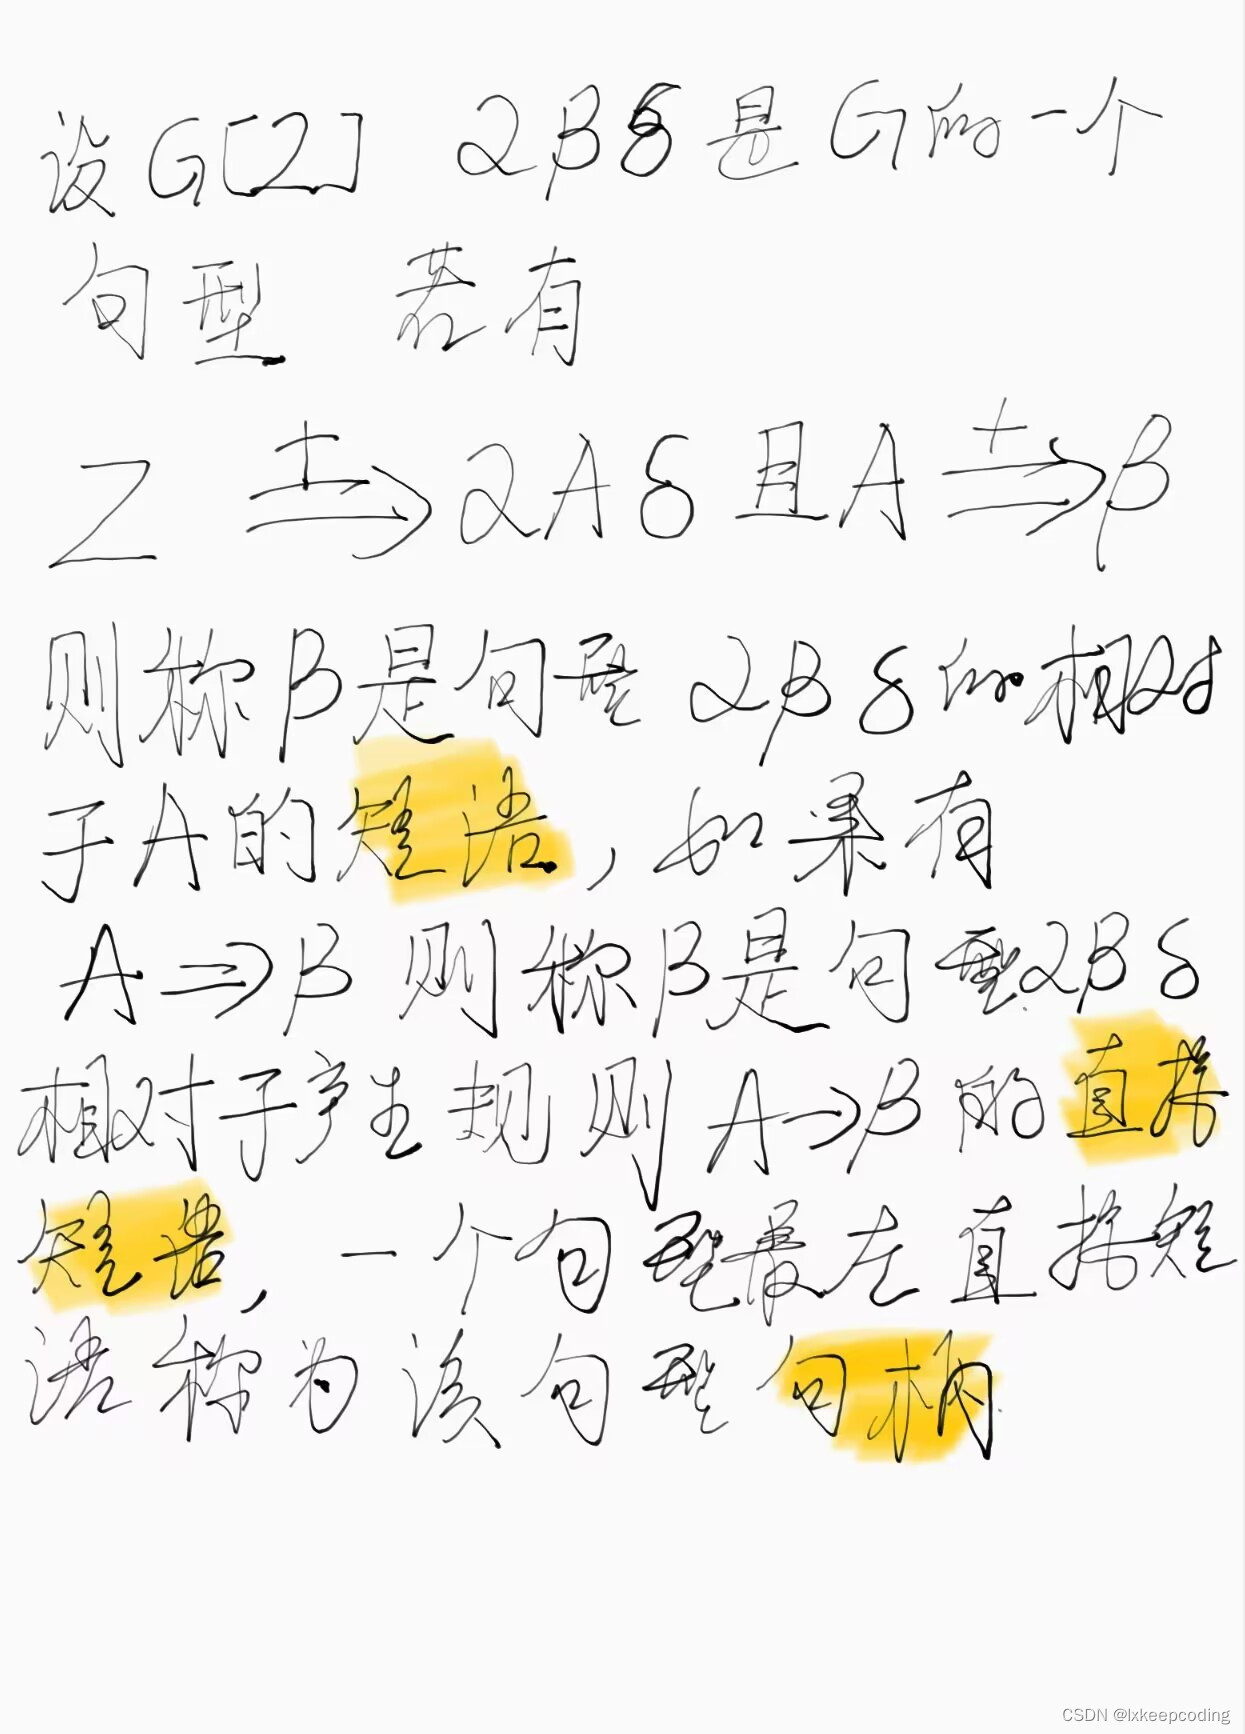 设G[Z] αβδ是G的一个
句型 若有
Z ⇒⁺ αAδ 且A ⇒⁺ β
则称β是句型αβδ的相对
于A的短语，如果有
A⇒β 则称β是句型αβδ
相对于产生规则A→β的直接
短语，一个句型最左直接短
语称为该句型句柄.
CSDN @lxkeepcoding